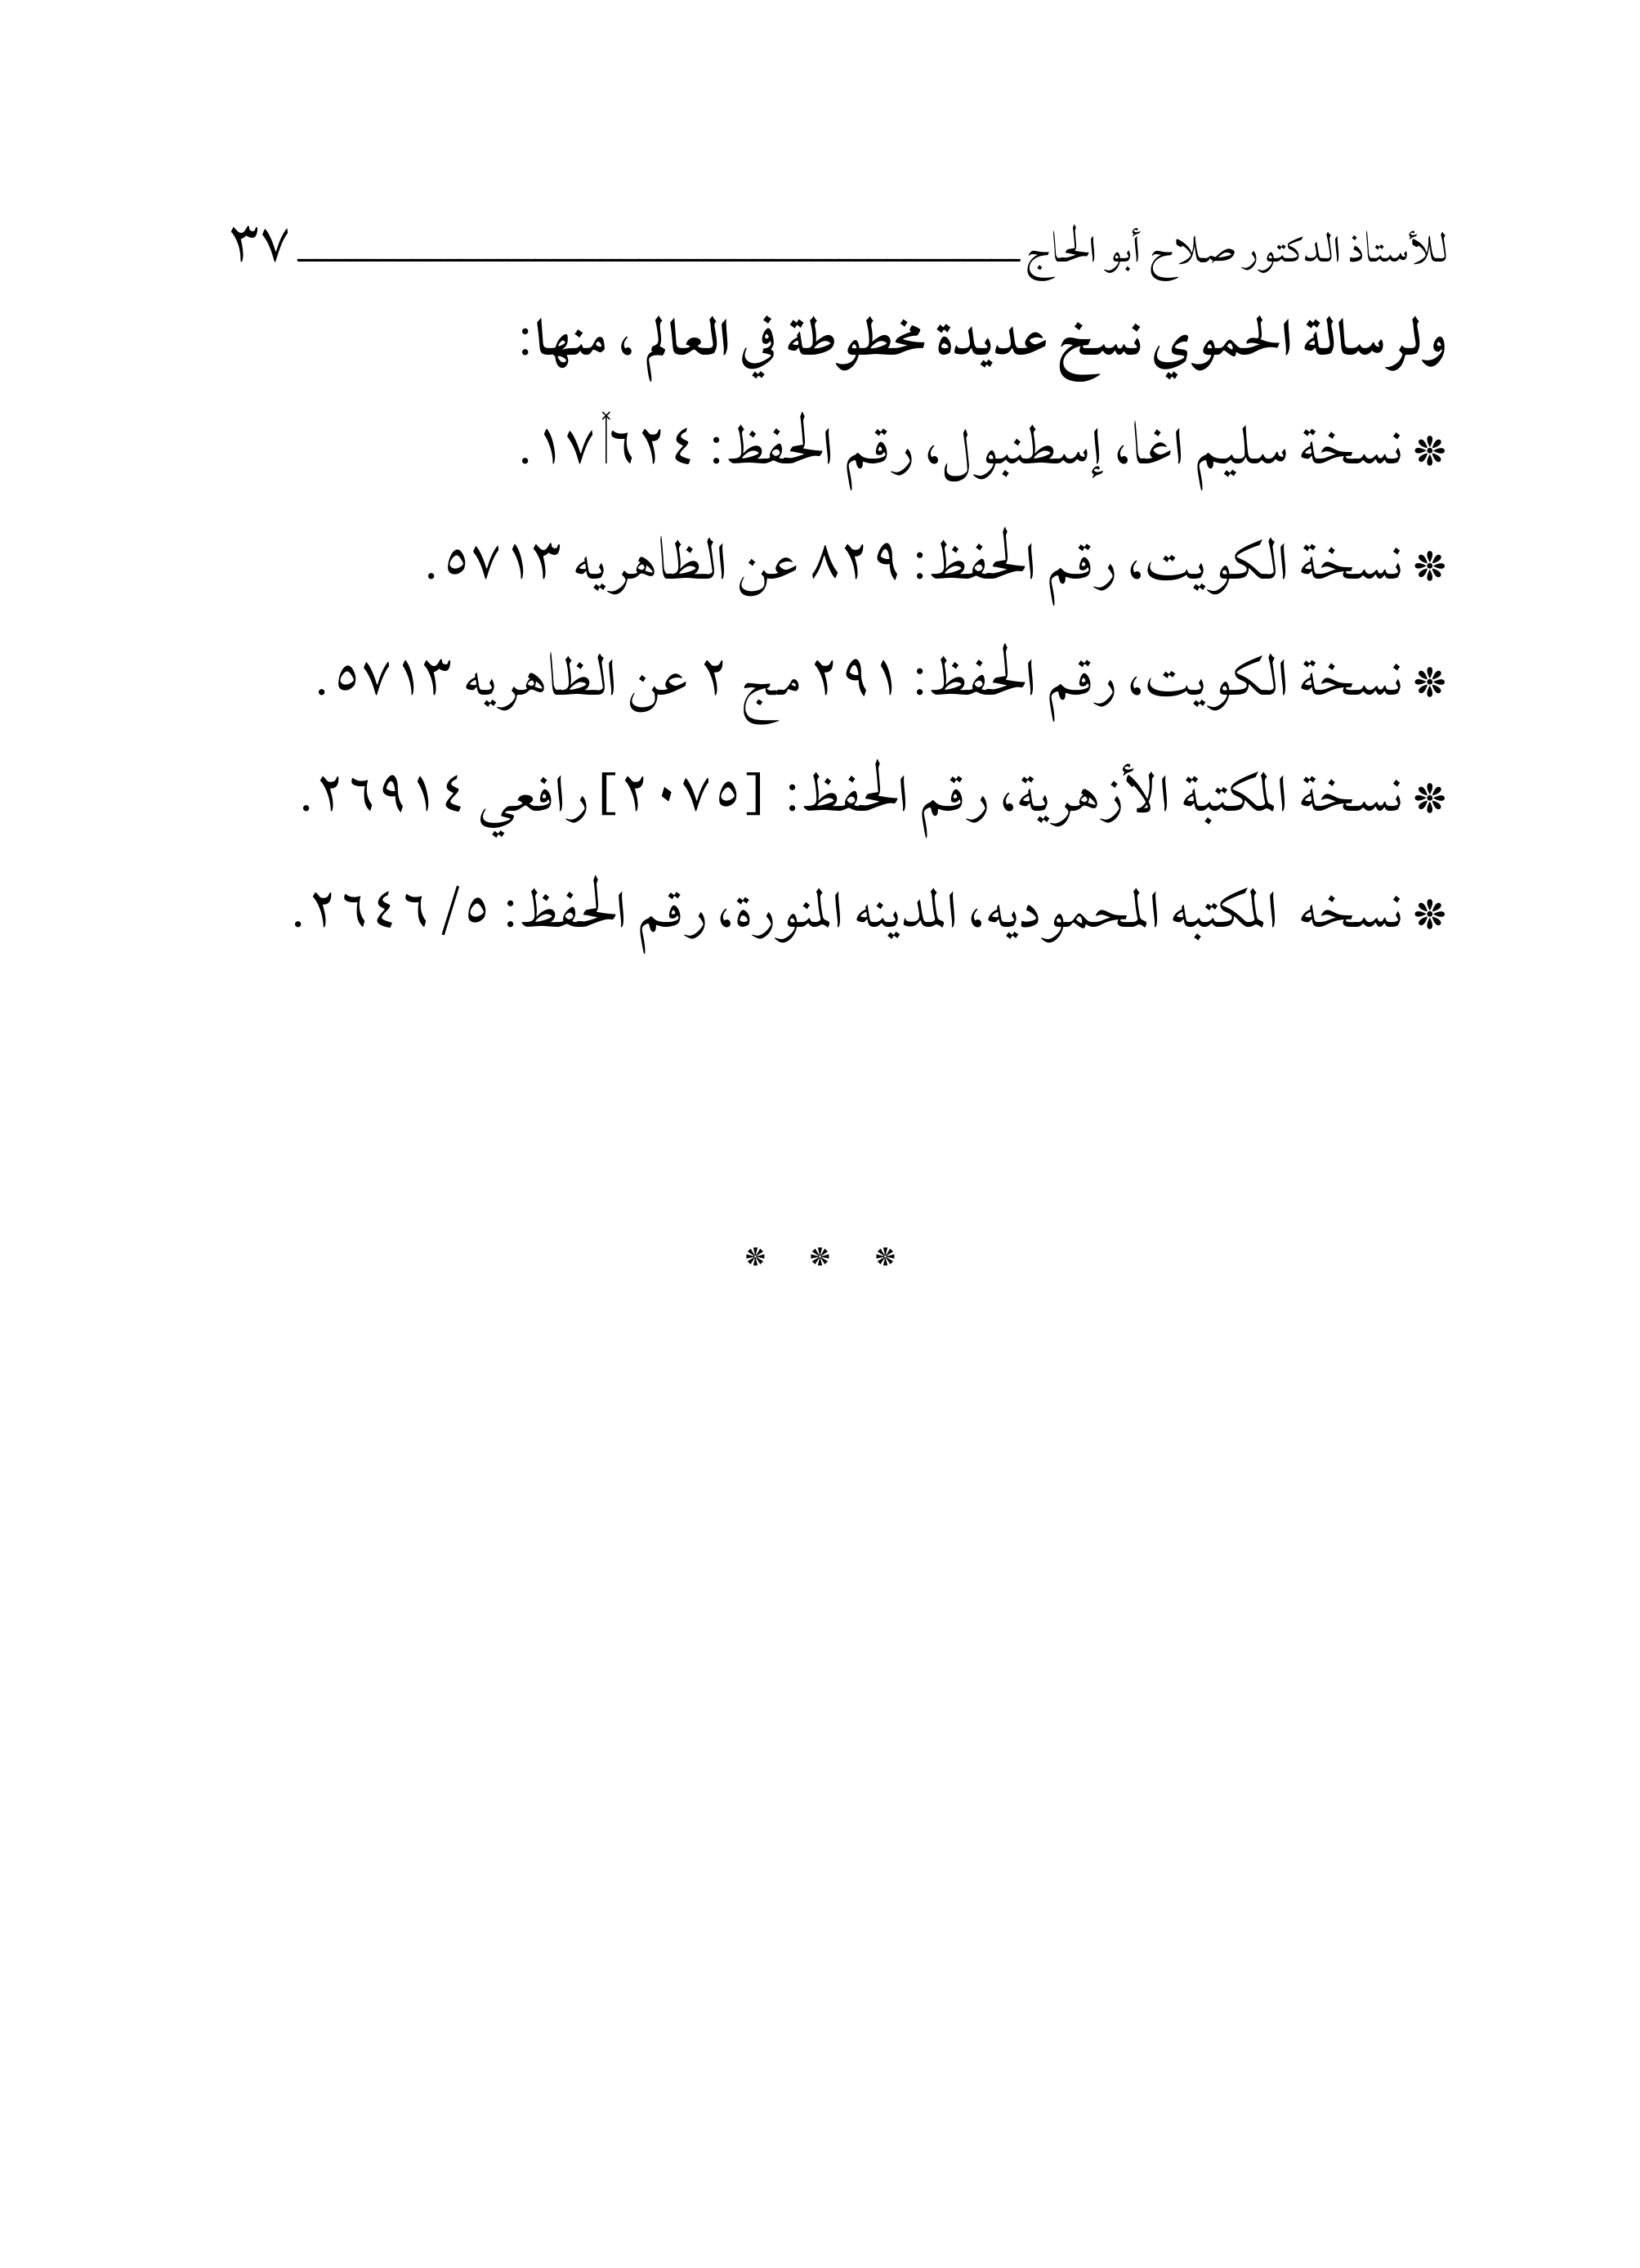 للأستاذ الدكتور صلاح أبو الحاج ــــــــــــــــــــــــــــــــــــــــ ٣٧
ولرسالة الحموي نسخ عديدة مخطوطة في العالم، منها:
❊ نسخة سليم اغا، إسطنبول، رقم الحفظ: ١٧‍٦٢٤.
❊ نسخة الكويت، رقم الحفظ: ٨٢٩ عن الظاهريه ٥٧١٣.
❊ نسخة الكويت، رقم الحفظ: ٢٩١ مج ٢ عن الظاهريه ٥٧١٣.
❊ نسخة المكتبة الأزهرية، رقم الحفظ: [٢٠٧٥] رافعي ٢٦٩١٤.
❊ نسخه المكتبه المحموديه، المدينه المنورة، رقم الحفظ: ٥/ ٢٦٤٦.
❊ ❊ ❊